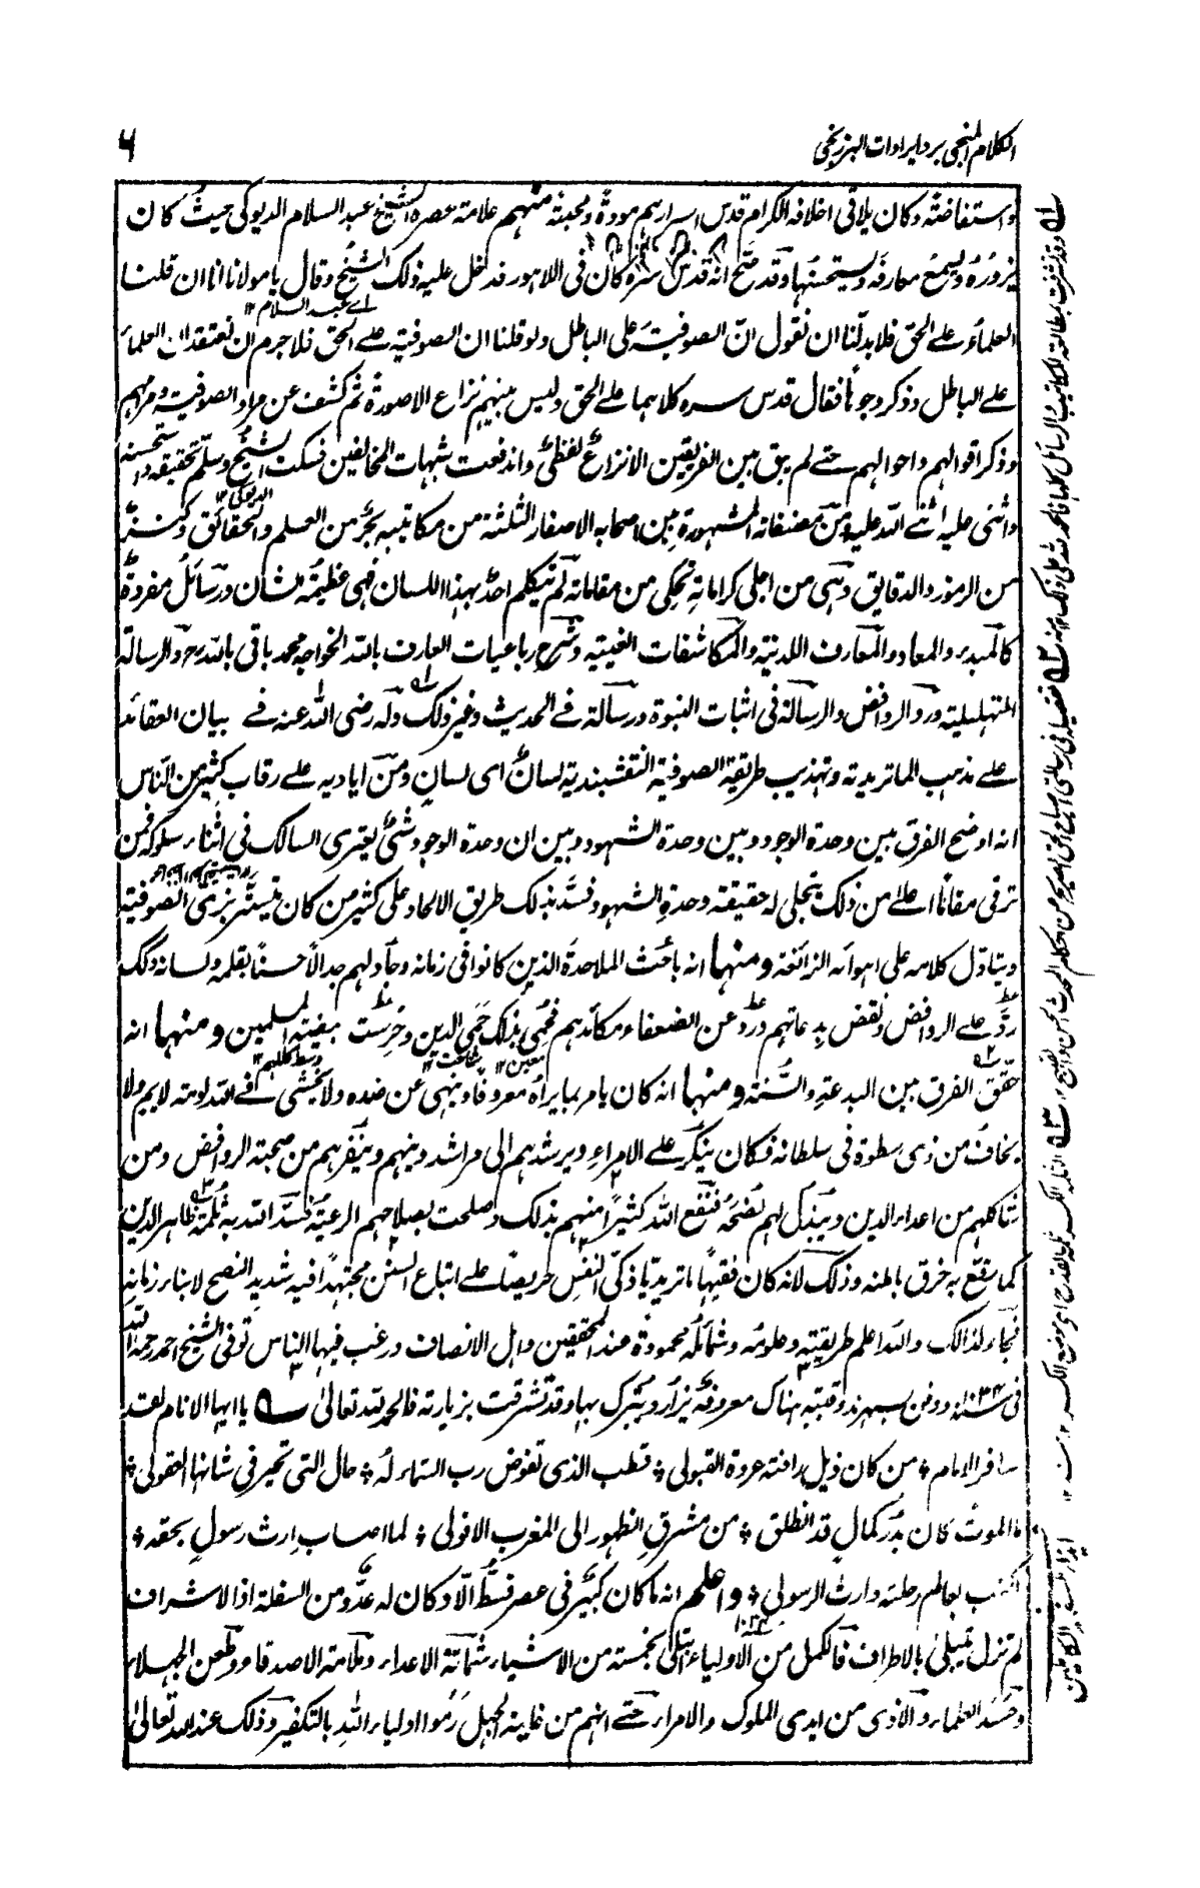 الكلام المنجي برد ايرادات البرزنجي
٦
واستفاضته وكان يلاقي اخلافه الكرام قدس اسرارهم مودة ومحبة منهم علامة عصره الشيخ عبد السلام الديوكى حيث كان
يزوره ويسمع معارفه ويستحسنها وقد صح انه قدس سره كان فى اللاهور فدخل عليه ذلك الشيخ وقال يا مولانا انا ان قلنا
اے عبد السلام ١٢
العلماء على الحق فلا بد لنا ان نقول ان الصوفية على الباطل ولو قلنا ان الصوفية على الحق فلا جرم ان نعتقد ان العلماء
على الباطل وذكر وجوها فقال قدس سره كلاهما على الحق وليس بينهم نزاع الا صورة ثم كشف عن مراد الصوفية ومرامهم
وذكر اقوالهم واحوالهم حتى لم يبق بين الفريقين الا نزاع لفظى واندفعت شبهات المخالفين فسكت الشيخ وسلم تحقيقه واستحسنه
الديوكى ١٢
واثنى عليه اثنى الله عليه ومن مصنفاته المشهورة بين اصحابه الاصفار الثلثة من مكاتيبه بحر من العلم والحقائق وكنز
من الرموز والدقايق وهى من اجلى كراماته تحكى من مقاماته لم يتكلم احد بهذا اللسان فهى عظيمة الشان ورسائل مفردة
كالمبدء والمعاد والمعارف اللدنية والمكاشفات الغيبية وشرح رباعيات العارف بالله الخواجه محمد باقى بالله رح والرسالة
التهليلية ورد الروافض والرسالة فى اثبات النبوة ورسالة فى الحديث وغير ذلك وله رضى الله عنه فى بيان العقائد
على مذهب الماتريدية وتهذيب طريقة الصوفية النقشبندية لسان اى لسان ومن اياديه على رقاب كثير من الناس
انه اوضح الفرق بين وحدة الوجود وبين وحدة الشهود وبين ان وحدة الوجود شئ يعترى السالك فى اثناء سلوكه فمن
ترقى مقاما اعلى من ذلك يتجلى له حقيقة وحدة الشهود فسد بذلك طريق الالحاد على كثير من كان يتستر بزى الصوفية
ويتاول كلامه على اهوائه الزائغة ومنها انه باحث الملاحدة الذين كانوا فى زمانه وجادلهم جدالا حسنا بقلمه ولسانه وذلك
رد على الروافض ونقض بدعاتهم ورد عن الضعفاء مكائدهم فحمى بذلك حمى الدين وحرست بيضة المسلمين ومنها انه
حقق الفرق بين البدعة والسنة ومنها انه كان يامر بما يراه معروفا وينهى عن ضده ولا يخشى فى الله لومة لايم ولا
يخاف من ذى سطوة فى سلطانه فكان ينكر على الامراء ويرشدهم الى مراشد دينهم وينفرهم من صحبة الروافض ومن
شاكلهم من اعداء الدين ويبذل لهم نصحه فنفع الله كثيرا منهم بذلك وصلحت بصلاحهم الرعية فسد الله به ثلمة ظاهر الدين
كما رقع به خرق باطنه وذلك لانه كان فقيها ماتريديا ذكى النفس حريصا على اتباع السنن مجتهدا فيه شديد النصح لابناء زمانه
فجاء لذالك والله اعلم طريقته وعلومه وشمائله محمودة عند المحققين واهل الانصاف ورغب فيها الناس توفى الشيخ احمد رحمه الله
فى سنة ١٠٣٤ ودفن بسهرند وقبته هناك معروفة يزار ويتبرك بها وقد تشرفت بزيارته فالحمد لله تعالى يا ايها الانام لقد
سافر الامام ٭ من كان ذيل رافته عروة القبولى ٭ قطب الذى تفوض رب السماء له ٭ حال التى تحير فى شانها العقولى ٭
فالموت كان بدر كمال قد انطلق ٭ من مشرق الظهور الى المغرب الافولى ٭ لما اصاب ارث رسول بحقه ٭
اكتب بعالم رحلته وارث الرسولى ٭ واعلم انه ما كان كبير فى عصر قط الا وكان له عدو من السفلة اذ الاشراف
١٠٣٤
لم تزل تبتلى بالاطراف فالكمل من الاولياء ابتلى بخمسة من الاشياء شماتة الاعداء وملامة الاصدقاء وطعن الجهلاء
وحسد العلماء والاذى من ايدى الملوك والامراء حتى انهم من غاية الجهل رموا اولياء الله بالتكفير وذلك عند الله تعالى